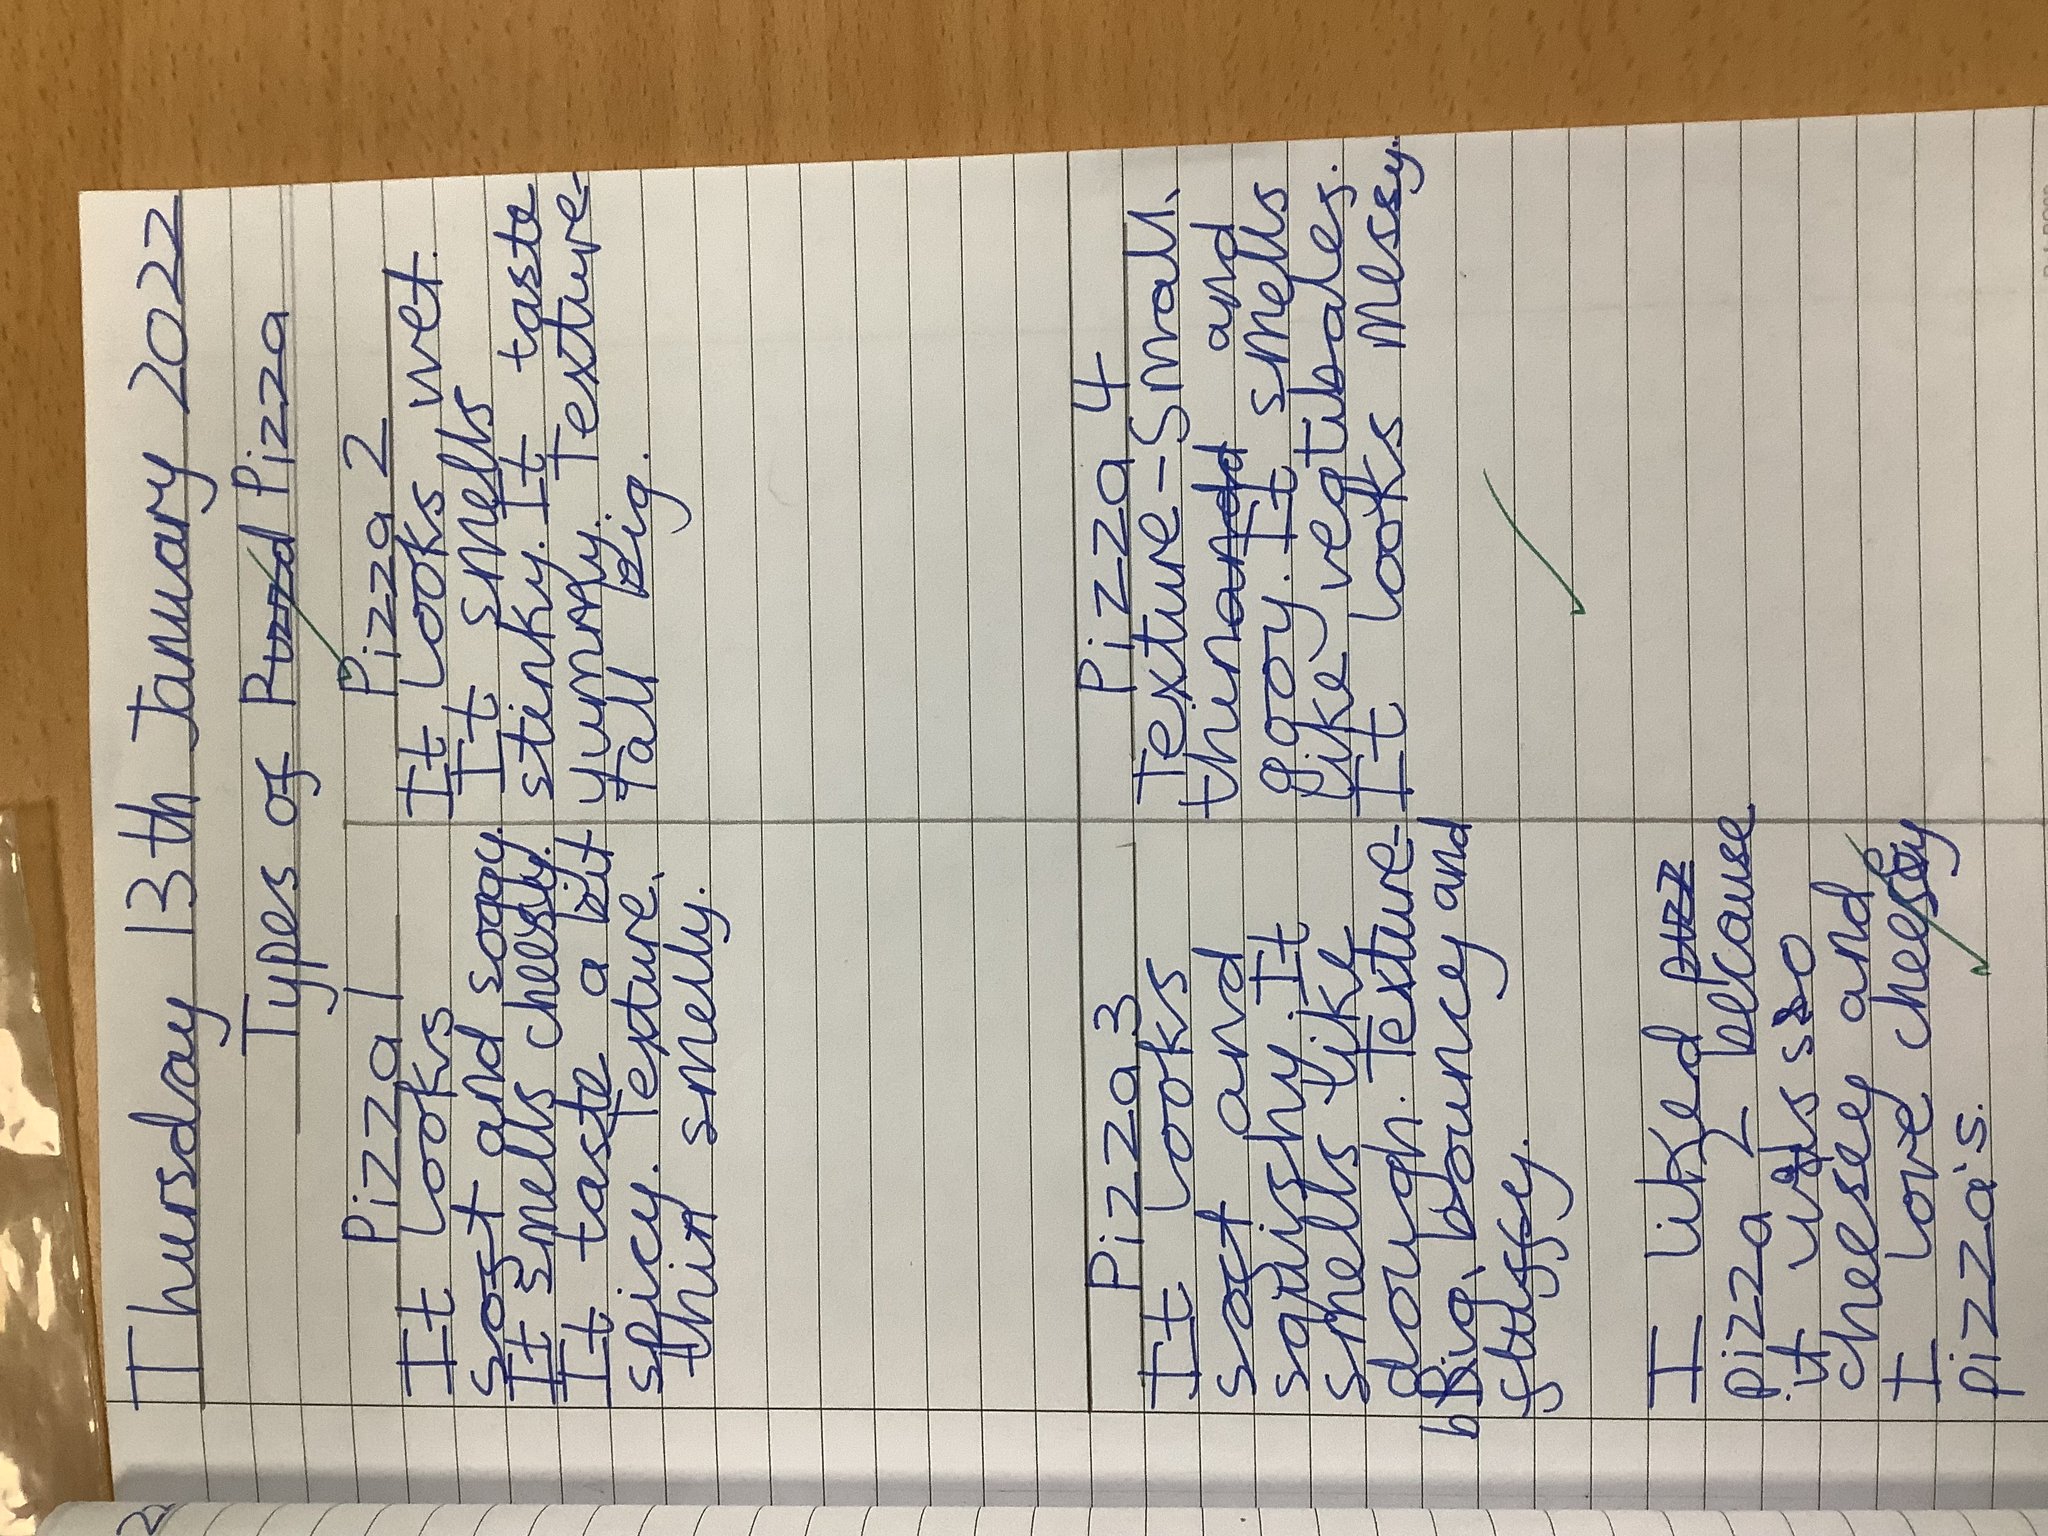 Thursday 13th January 2022
Types of Pizza
Pizza 1
It looks
soft and soggy.
It smells cheesy.
It taste a bit
spicy. Texture.
thin smelly.
Pizza 2
It looks wet.
It smells
stinky. It taste
yummy. Texture-
Tall big.
Pizza 3
It looks
soft and
squishy. It
smells like
dough. Texture-
Big, bouncy and
fluffy.
Pizza 4
Texture-Small.
thin and
gooy. It smells
like vegtibales.
It looks messy.
I liked
pizza 2 because
it was so
cheesey and
I love cheesey
pizza's.